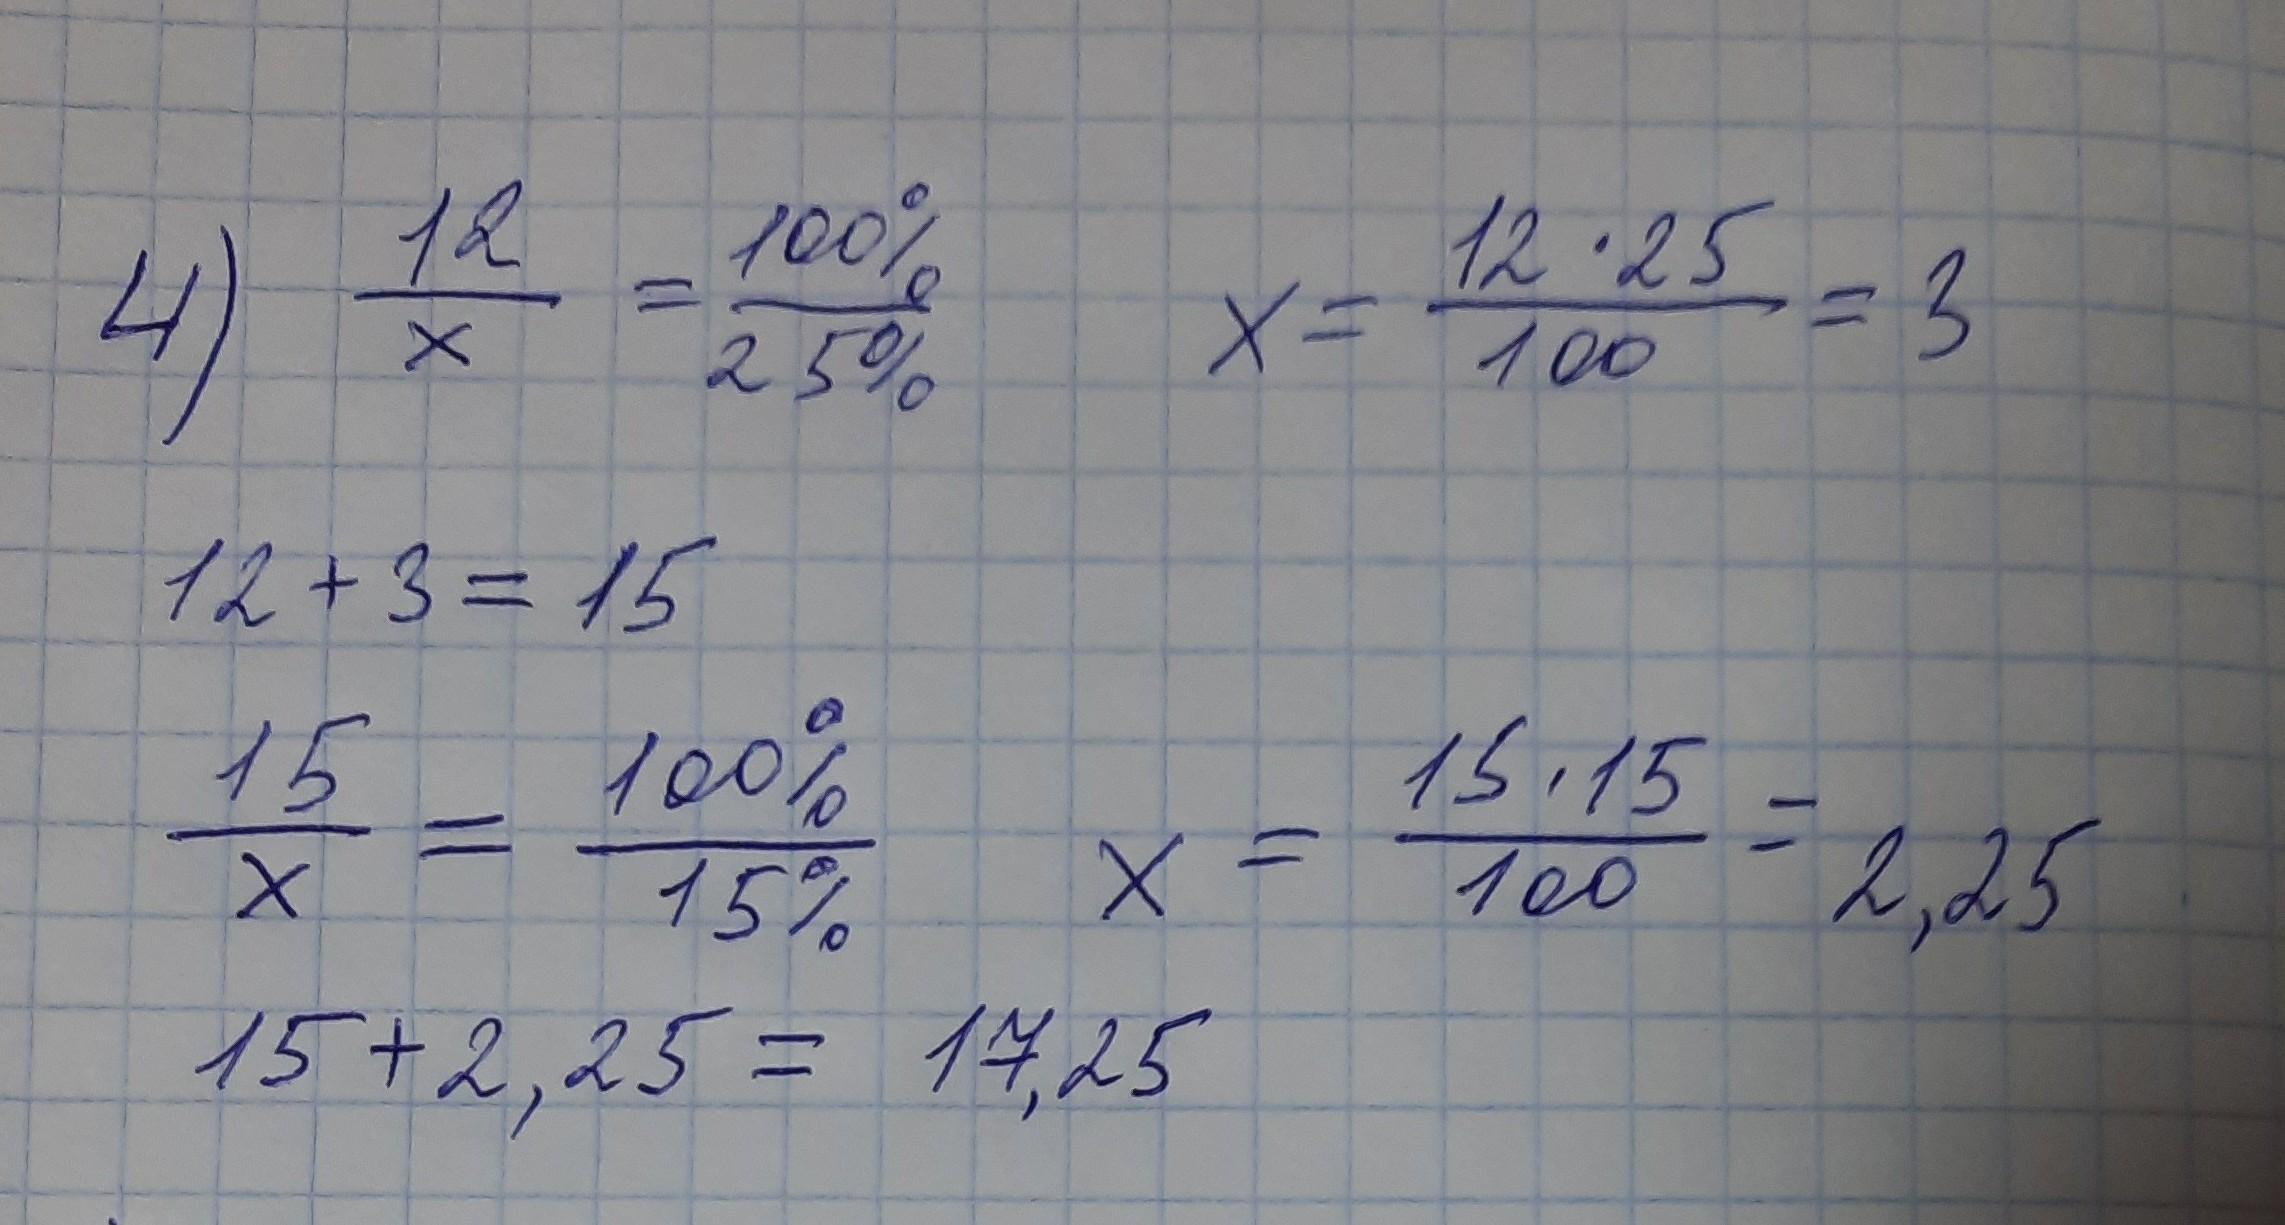 4) 12/x = 100%/25% x = 12·25/100 = 3
12 + 3 = 15
15/x = 100%/15% x = 15·15/100 = 2,25
15 + 2,25 = 17,25